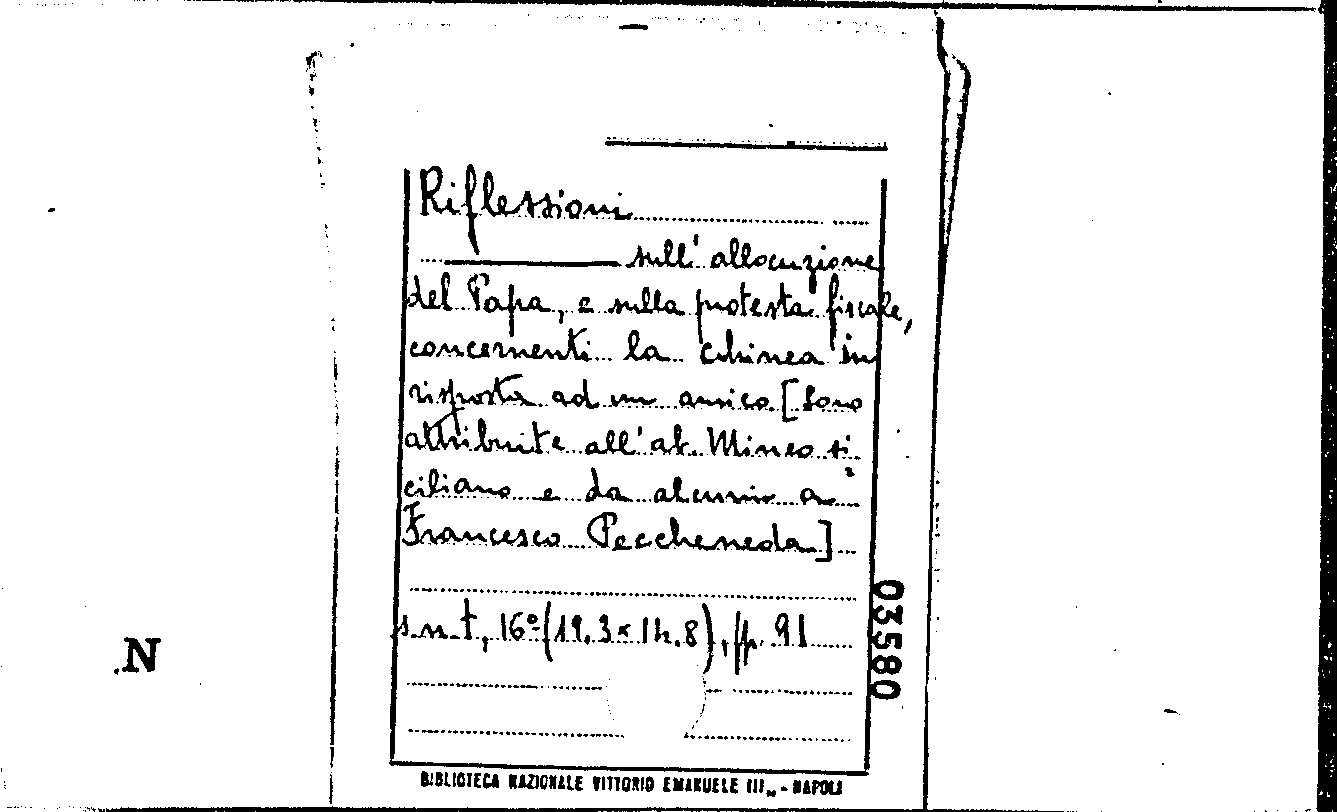 Riflessioni
sull' allocuzione
del Papa, e sulla protesta fiscale,
concernenti la chinea in
risposta ad un amico [Sono
attribuite all' ab. Mineo si-
ciliano e da alcuni a
Francesco Peccheneda]
s.n.t, 16° (19.3 x 12.8), pp. 91
03580
N
BIBLIOTECA NAZIONALE VITTORIO EMANUELE III„ - NAPOLI